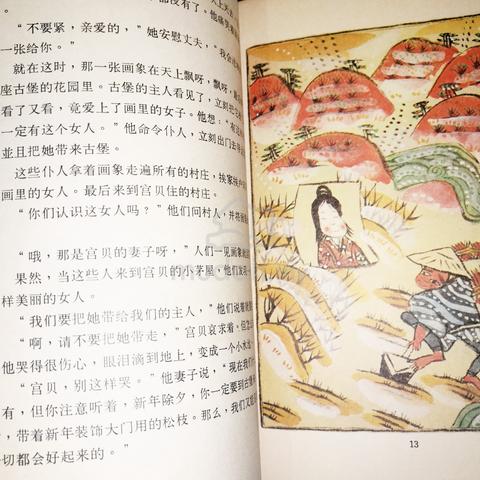 都没有了。他痛
。
“不要紧，亲爱的，”她安慰丈夫，“我会
一张给你。”
就在这时，那一张画象在天上飘呀，飘呀，
座古堡的花园里。古堡的主人看见了，立刻把
看了又看，竟爱上了画里的女子。他想：“有这
一定有这个女人。”他命令仆人，立刻出门去
並且把她带来古堡。
这些仆人拿着画象走遍所有的村庄，挨家挨户
画里的女人。最后来到宫贝住的村庄。
“你们认识这女人吗？”他们问村人，并
“哦，那是宫贝的妻子呀，”人们一见画象
果然，当这些人来到宫贝的小茅屋，他们发现
样美丽的女人。
“我们要把她带给我们的主人，”他们说着
“啊，请不要把她带走，”宫贝哀求着，但
他哭得很伤心，眼泪滴到地上，变成一个小水
“宫贝，别这样哭。”他妻子说，“现在我们
有，但你注意听着，新年除夕，你一定要到古堡
，带着新年装饰大门用的松枝。那么，我们又
切都会好起来的。”
13